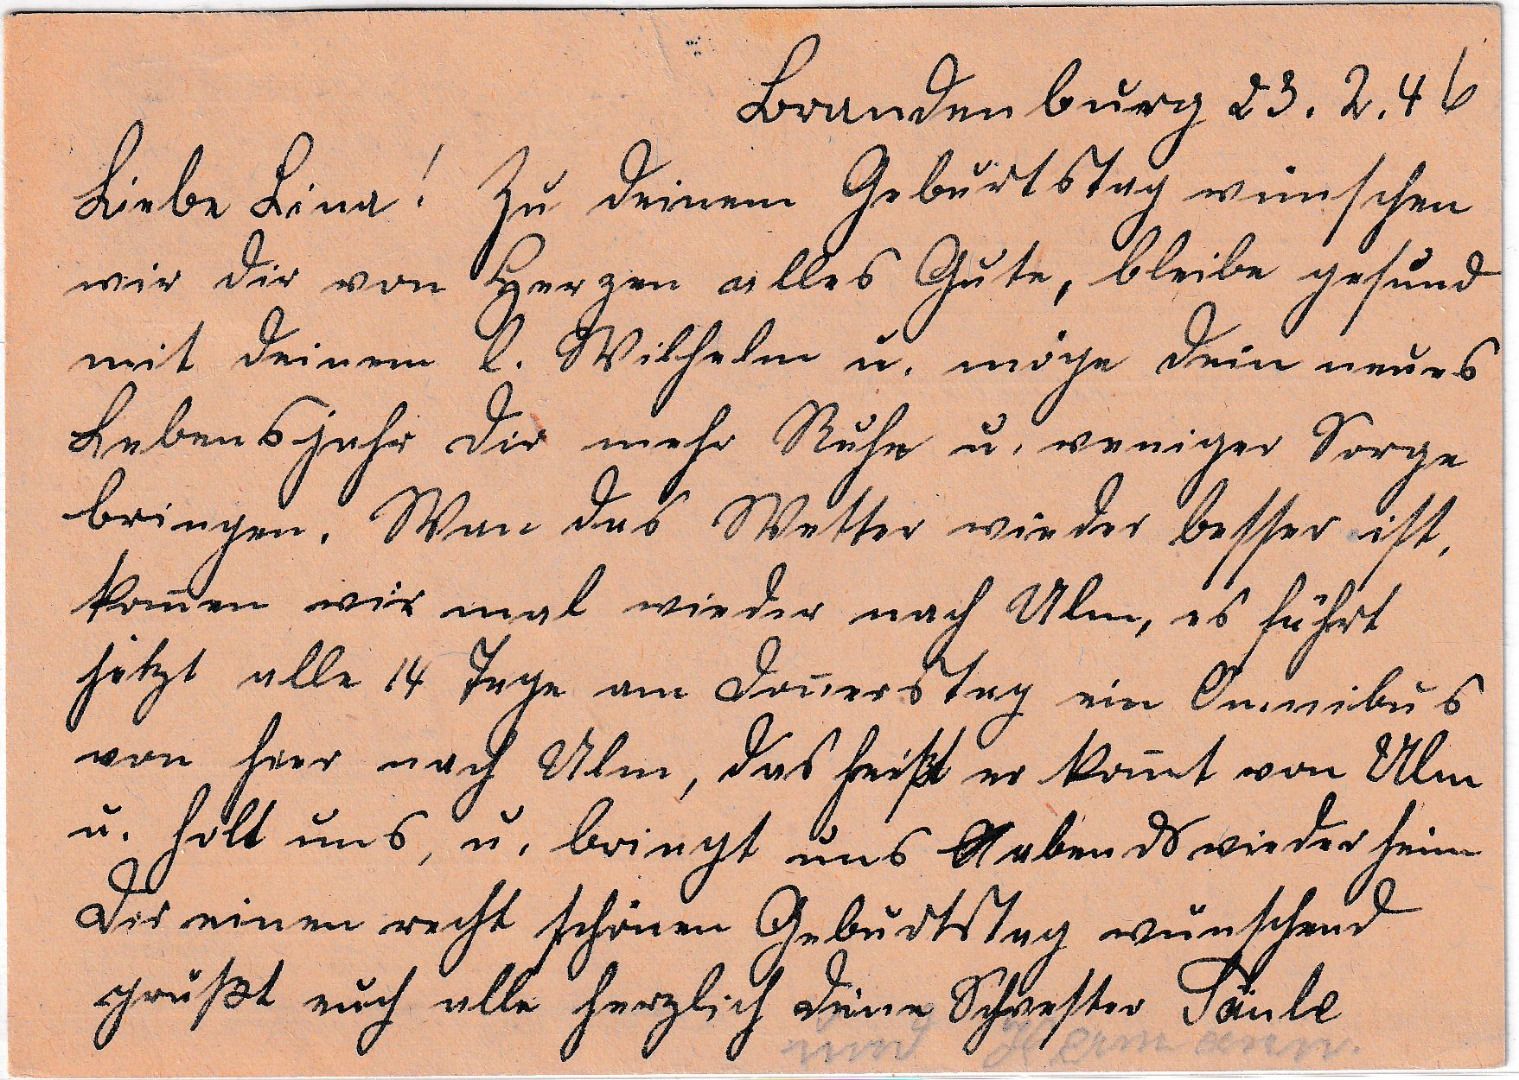 Brandenburg 23. 2. 46
Liebe Lina! Zu deinem Geburtstag wünschen
wir dir von Herzen alles Gute, bleibe gesund
mit deinem l. Wilhelm u. möge dein neues
Lebensjahr dir mehr Ruhe u. weniger Sorge
bringen. Wan das Wetter wieder besser ist,
kom̄en wir mal wieder nach Ulm, es fährt
jetzt alle 14 Tage am Don̄erstag ein Omnibus
von hier nach Ulm, das heißt er kom̄t von Ulm
u. holt uns, u. bringt uns Aabends wieder heim
Dir einen recht schönen Geburtstag wünschend
grüßt euch alle herzlich deine Schwester
und Hermann.